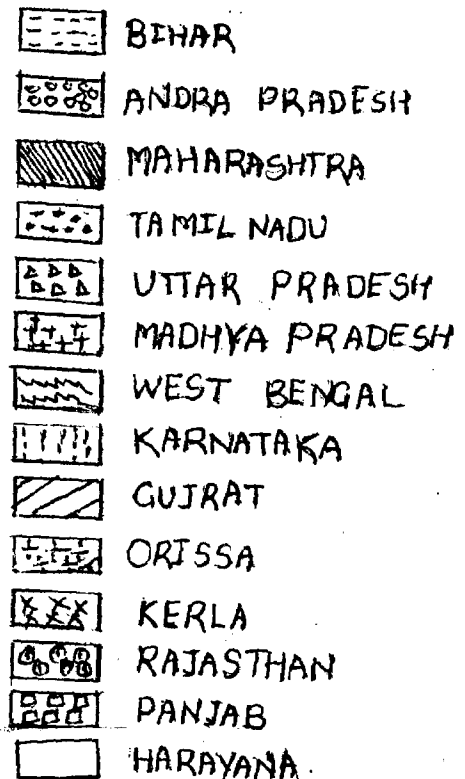 BIHAR
ANDRA PRADESH
MAHARASHTRA
TAMIL NADU
UTTAR PRADESH
MADHYA PRADESH
WEST BENGAL
KARNATAKA
GUJRAT
ORISSA
KERLA
RAJASTHAN
PANJAB
HARAYANA.